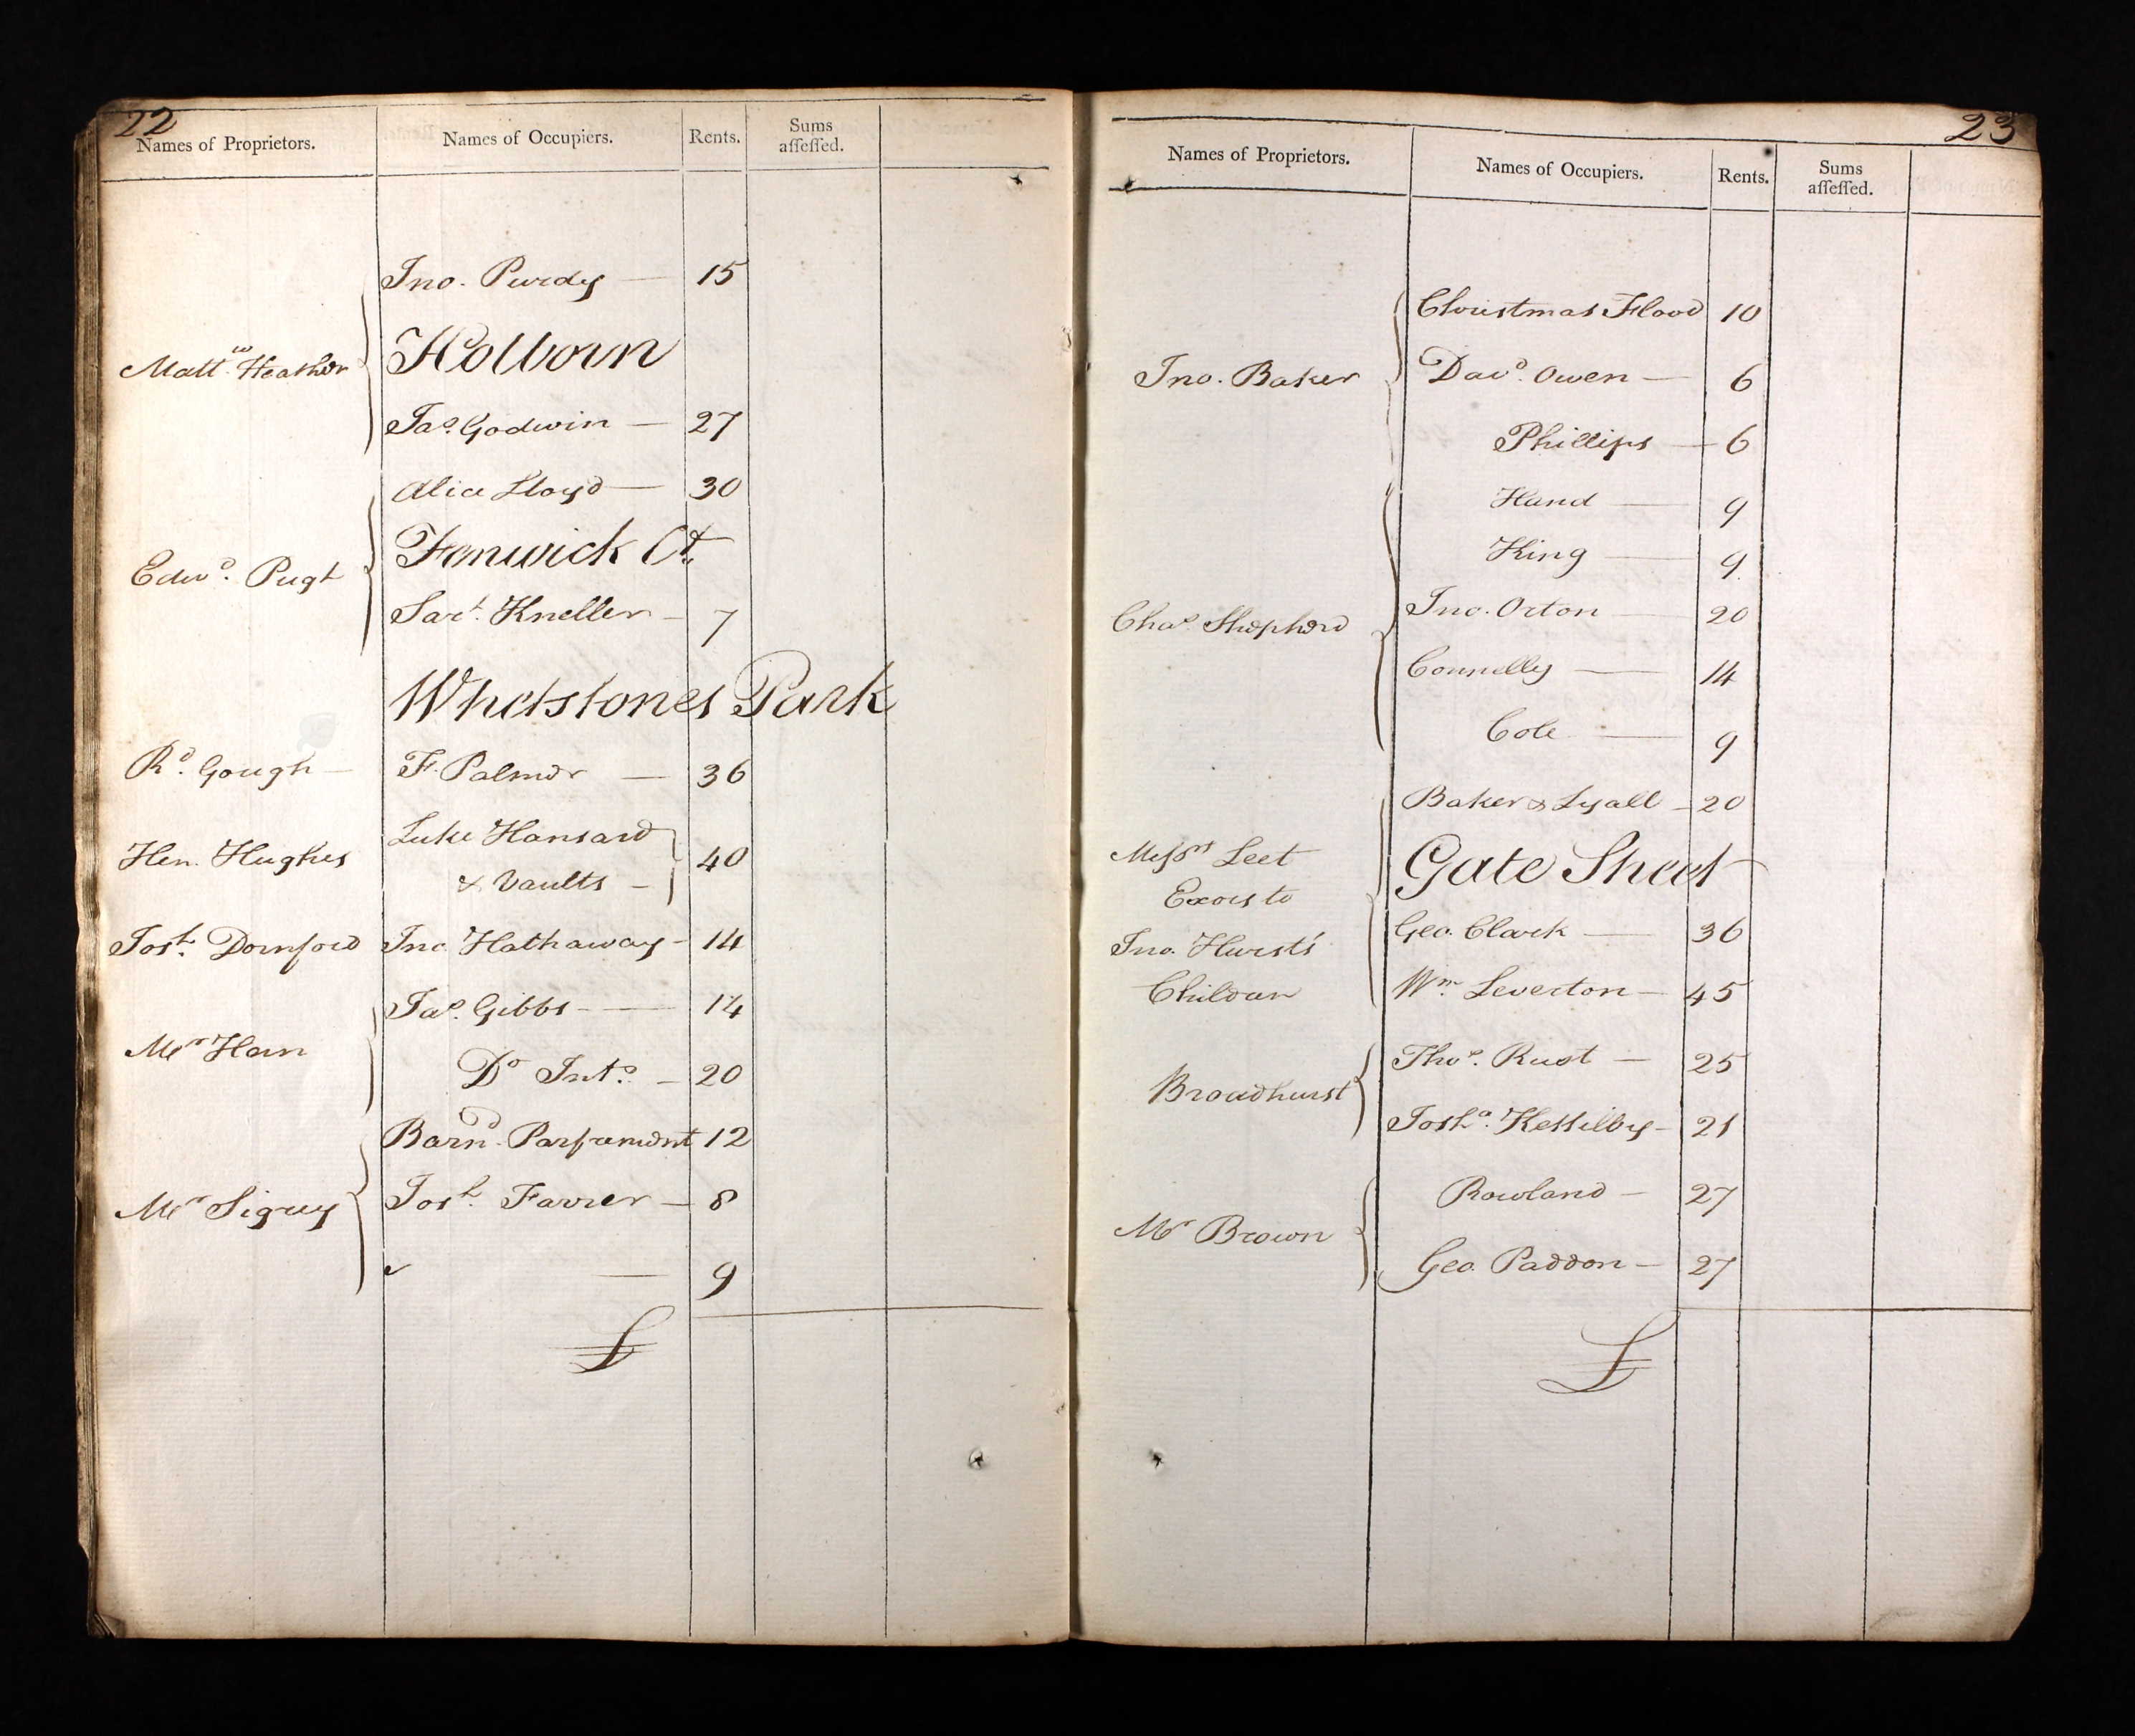 22
Names of Proprietors. Names of Occupiers. Rents. Sums assessed.
Jno. Purdy — 15
Mattw. Heather
Holborn
Jas. Godwin — 27
Alice Lloyd — 30
Edwd. Pugh
Fenwick Ct.
Sarh. Kneller — 7
Whetstones Park
Rd. Gough — F. Palmer — 36
Hen. Hughes Luke Hansard
& Vaults — 40
Josh. Dornford Jno. Hathaway — 14
Jas. Gibbs — 14
Mr Ham
Do Int. — 20
Barnd. Parframent 12
Mr Sigrey Josh. Farrer — 8
— 9
£
23
Names of Proprietors. Names of Occupiers. Rents. Sums assessed.
Christmas Flood 10
Jno. Baker Davd. Owen — 6
Phillips — 6
Hand — 9
King — 9
Chas. Shepherd Jno. Orton — 20
Connelly — 14
Cole — 9
Baker & Lyall — 20
Messrs Leet Gate Street
Exors to
Geo. Clark — 36
Jno. Hursts
Children Wm. Leverton — 45
Thos. Rust — 25
Broadhurst
Josha. Kettilby — 21
Rowland — 27
Mr Brown
Geo. Paddon — 27
£